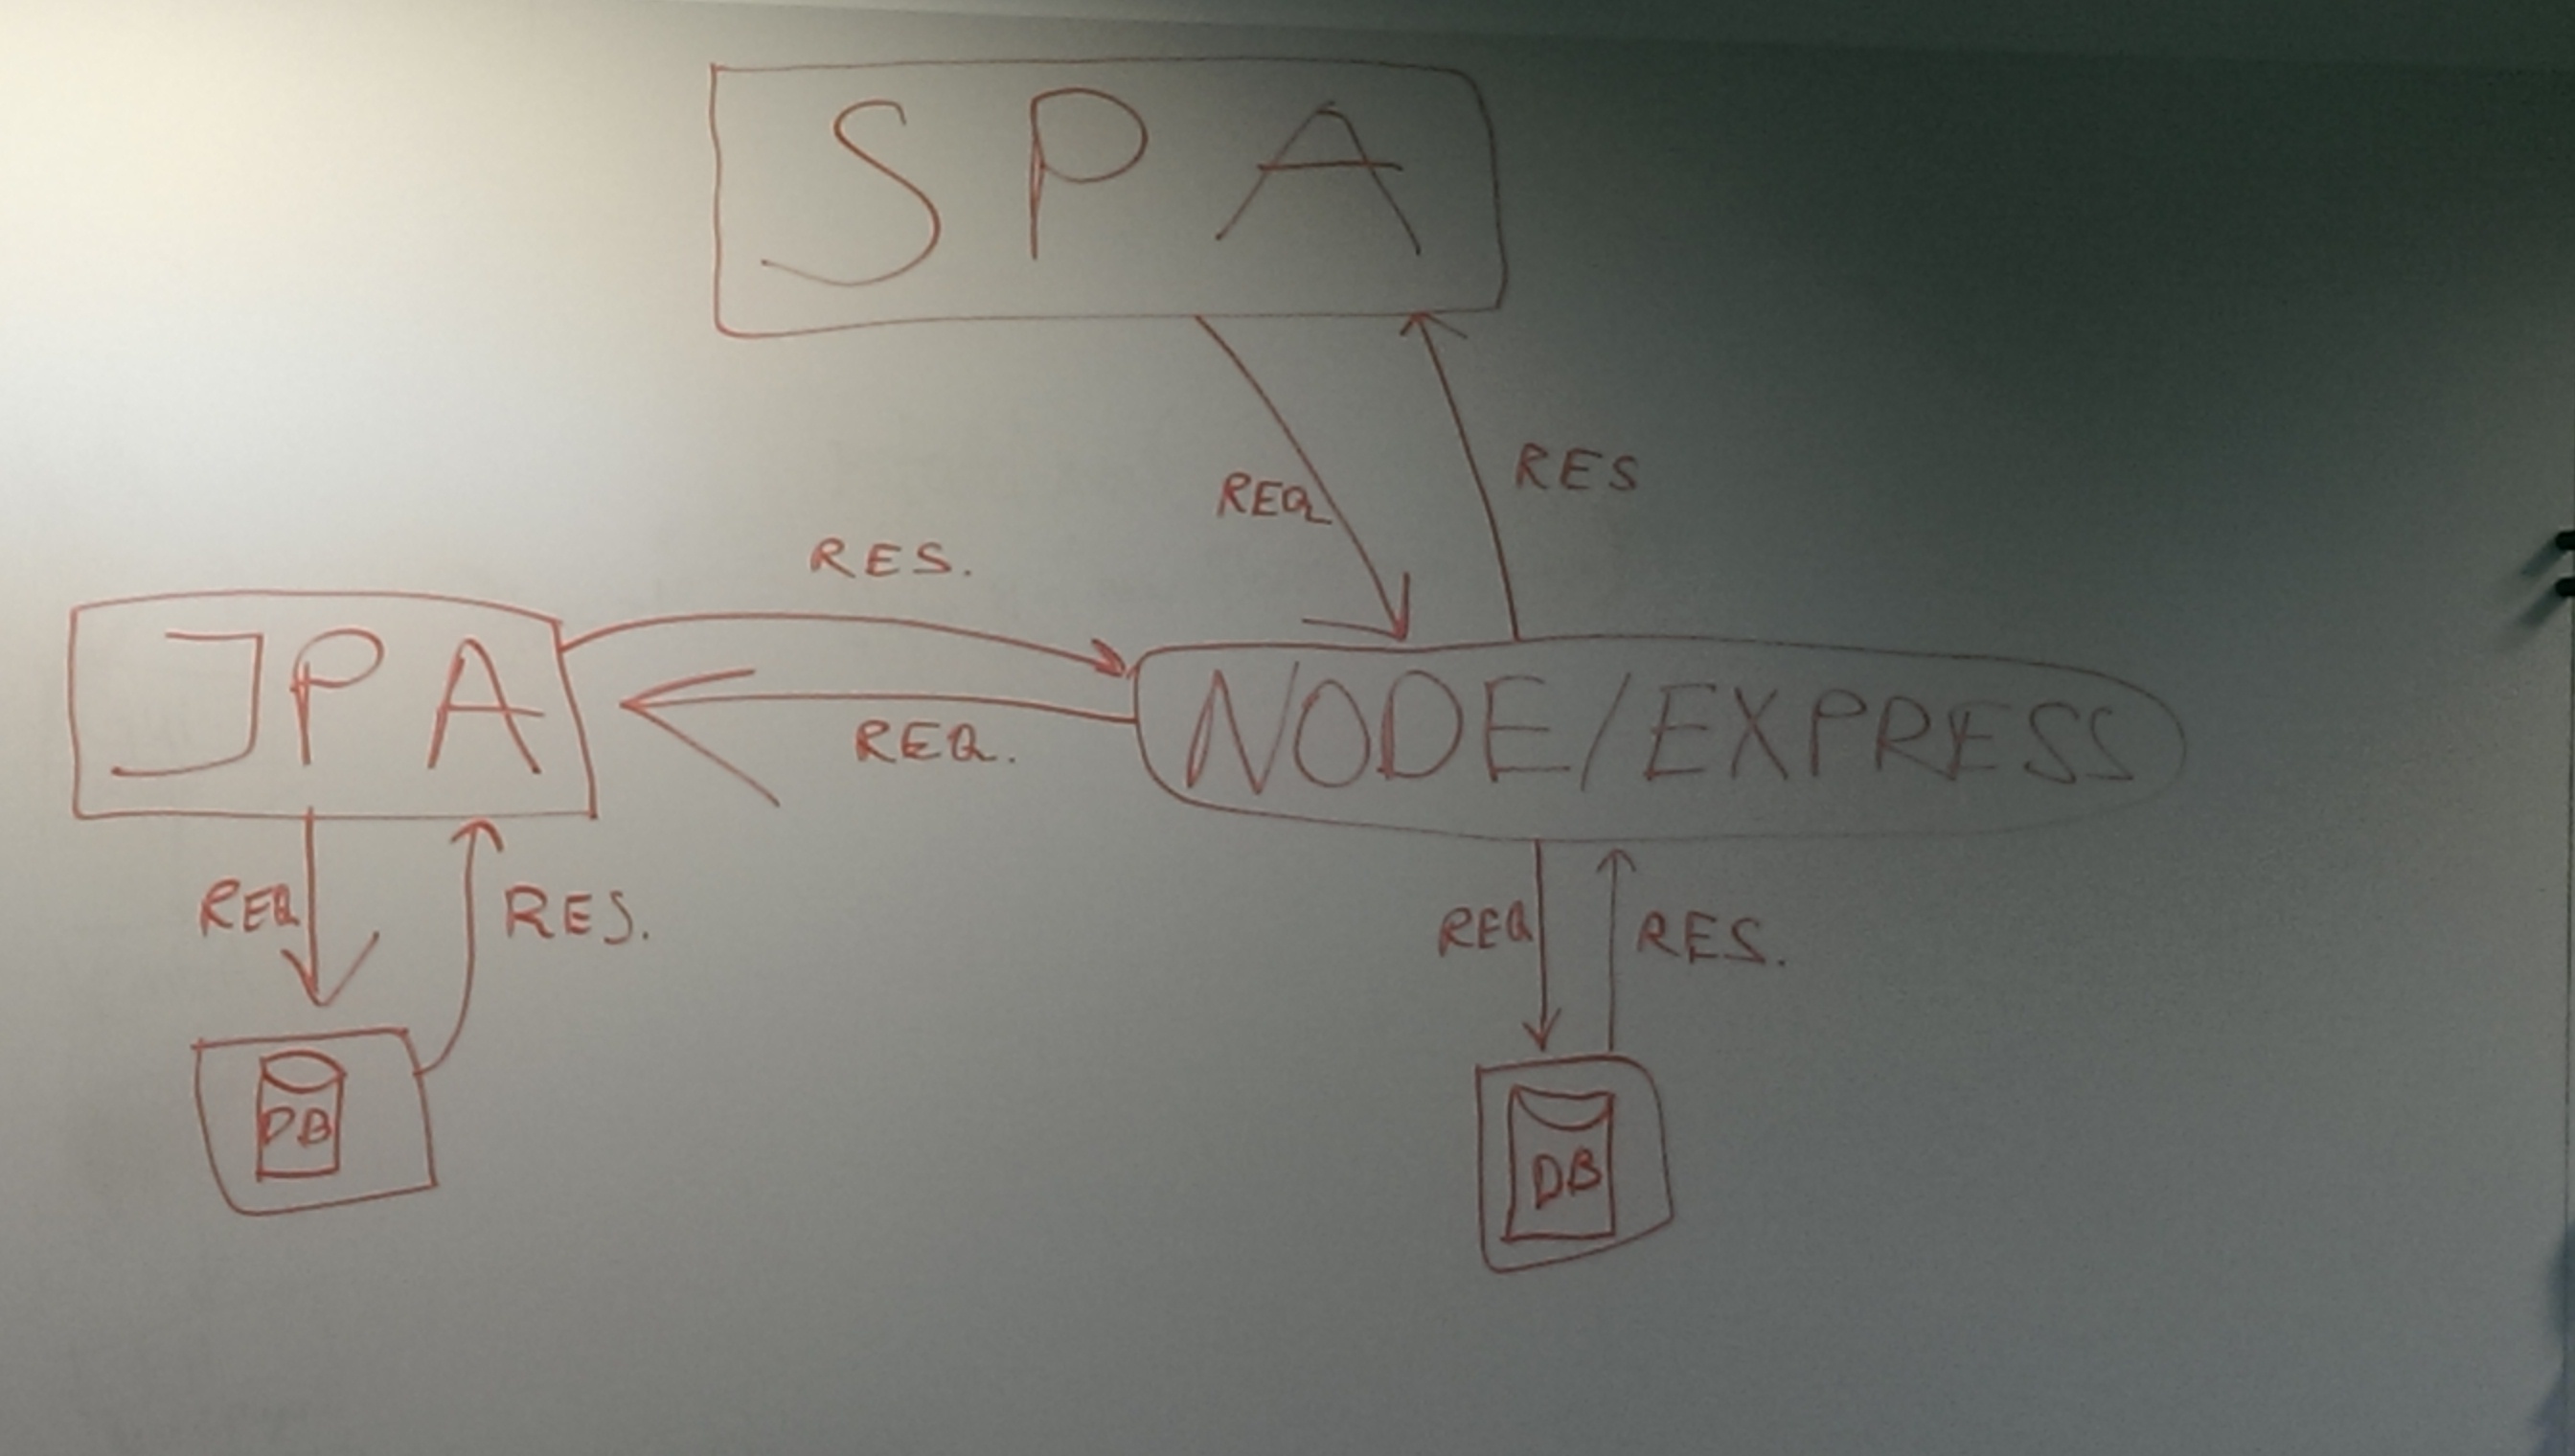 SPA
REQ
RES
RES.
JPA
REQ.
NODE/EXPRESS
REQ
RES.
REQ
RES.
DB
DB